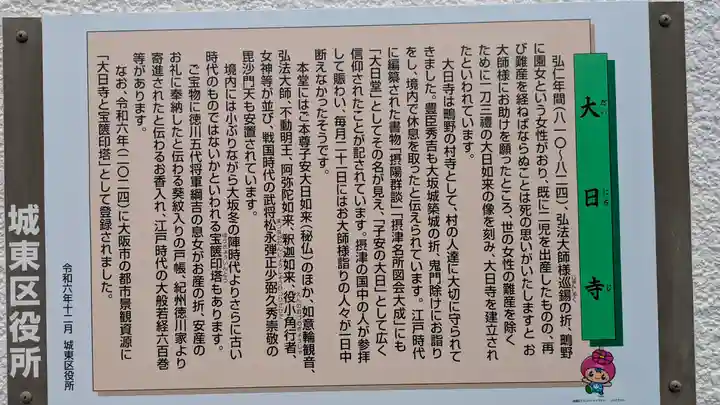 大日寺
だいにちじ
弘仁年間(八一〇〜八二四)、弘法大師様巡錫の折、鴫野
に園女という女性がおり、既に二児を出産したものの、再
び難産を経ねばならぬことは死の思いがいたしますと お
大師様にお助けを願ったところ、世の女性の難産を除く
ために一刀三禮の大日如来の像を刻み、大日寺を建立され
たといわれています。
大日寺は鴫野の村寺として、村の人達に大切に守られて
きました。豊臣秀吉も大坂城築城の折、鬼門除けにお詣り
をし、境内で休息を取ったと伝えられています。江戸時代
に編纂された書物「摂陽群談」「摂津名所図会大成」にも
「大日堂」としてその名が見え、「子安の大日」として広く
信仰されたことが記されています。摂津の国中の人が参拝
して賑わい、毎月二十一日にはお大師様詣りの人々が一日中
断えなかったそうです。
本堂にはご本尊子安大日如来(秘仏)のほか、如意輪観音、
弘法大師、不動明王、阿弥陀如来、釈迦如来、役小角行者、
女神等が並び、戦国時代の武将松永弾正少弼久秀崇敬の
毘沙門天も安置されています。
境内には小ぶりながら大坂冬の陣時代よりさらに古い
時代のものではないかといわれる宝篋印塔もあります。
ご宝物に徳川五代将軍綱吉の息女がお産の折、安産の
お礼に奉納したと伝わる葵紋入りの戸帳、紀州徳川家より
寄進されたと伝わるお香入れ、江戸時代の大般若経六百巻
等があります。
なお、令和六年(二〇二四)に大阪市の都市景観資源に
「大日寺と宝篋印塔」として登録されました。
令和六年十二月 城東区役所
城東区役所